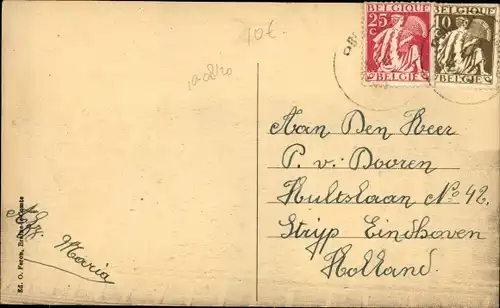 10€
BELGIQUE
25
C
BELGIE
BELGIQUE
10
BELGIE
Aan Den Heer
P. v. Dooren
Hultslaan No 42.
Stryp Eindhoven
Holland.
Maria
Ed. O. Feron,